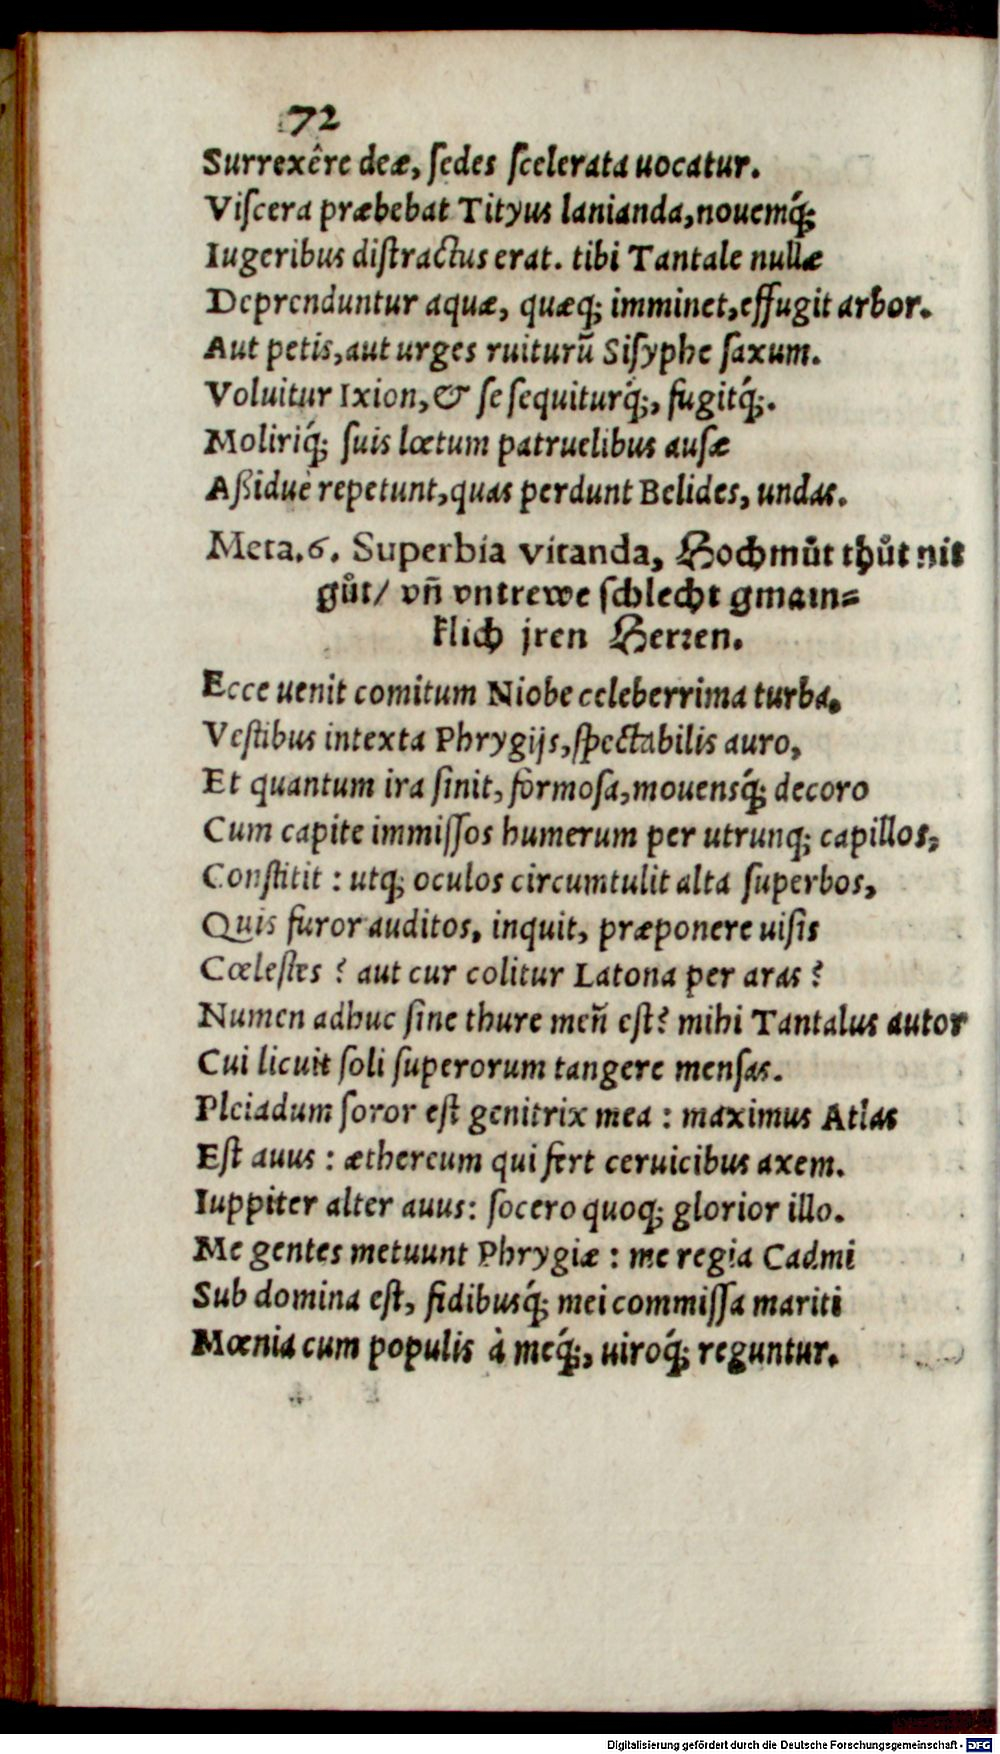 72
Surrexêre deæ, ſedes ſcelerata uocatur.
Viſcera præbebat Tityus lanianda, nouemq́;
Iugeribus diſtractus erat. tibi Tantale nullæ
Deprenduntur aquæ, quæq; imminet, effugit arbor.
Aut petis, aut urges ruiturũ Siſyphe ſaxum.
Voluitur Ixion, & ſe ſequiturq́;, fugitq́;.
Moliriq́; ſuis lœtum patruelibus auſæ
Aßiduè repetunt, quas perdunt Belides, undas.
Meta. 6. Superbia vitanda, Hochmůt thůt nit
gůt/ vñ vntrewe ſchlecht gmain⸗
klich jren Herꝛen.
Ecce uenit comitum Niobe celeberrima turba.
Veſtibus intexta Phrygijs, ſpectabilis auro,
Et quantum ira ſinit, formoſa, mouensq́; decoro
Cum capite immiſſos humerum per utrunq; capillos,
Conſtitit : utq; oculos circumtulit alta ſuperbos,
Quis furor auditos, inquit, præponere uiſis
Cœleſtes ? aut cur colitur Latona per aras ?
Numen adhuc ſine thure meñ eſt? mihi Tantalus autor
Cui licuit ſoli ſuperorum tangere menſas.
Pleiadum ſoror eſt genitrix mea : maximus Atlas
Eſt auus : æthereum qui fert ceruicibus axem.
Iuppiter alter auus: ſocero quoq; glorior illo.
Me gentes metuunt Phrygiæ : me regia Cadmi
Sub domina eſt, fidibusq́; mei commiſſa mariti
Mœnia cum populis à meq́;, uiroq́; reguntur.
Digitalisierung gefördert durch die Deutsche Forschungsgemeinschaft - DFG